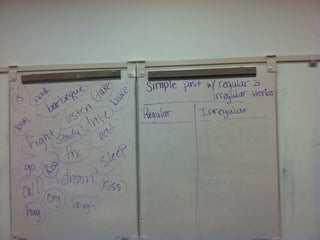 is have barbeque take
buy listen bake
fight study drive
eat
go kiss fix
sleep
call dream kiss
cry
hug laugh
Simple past w/ regular &
irregular verbs
Regular Irregular